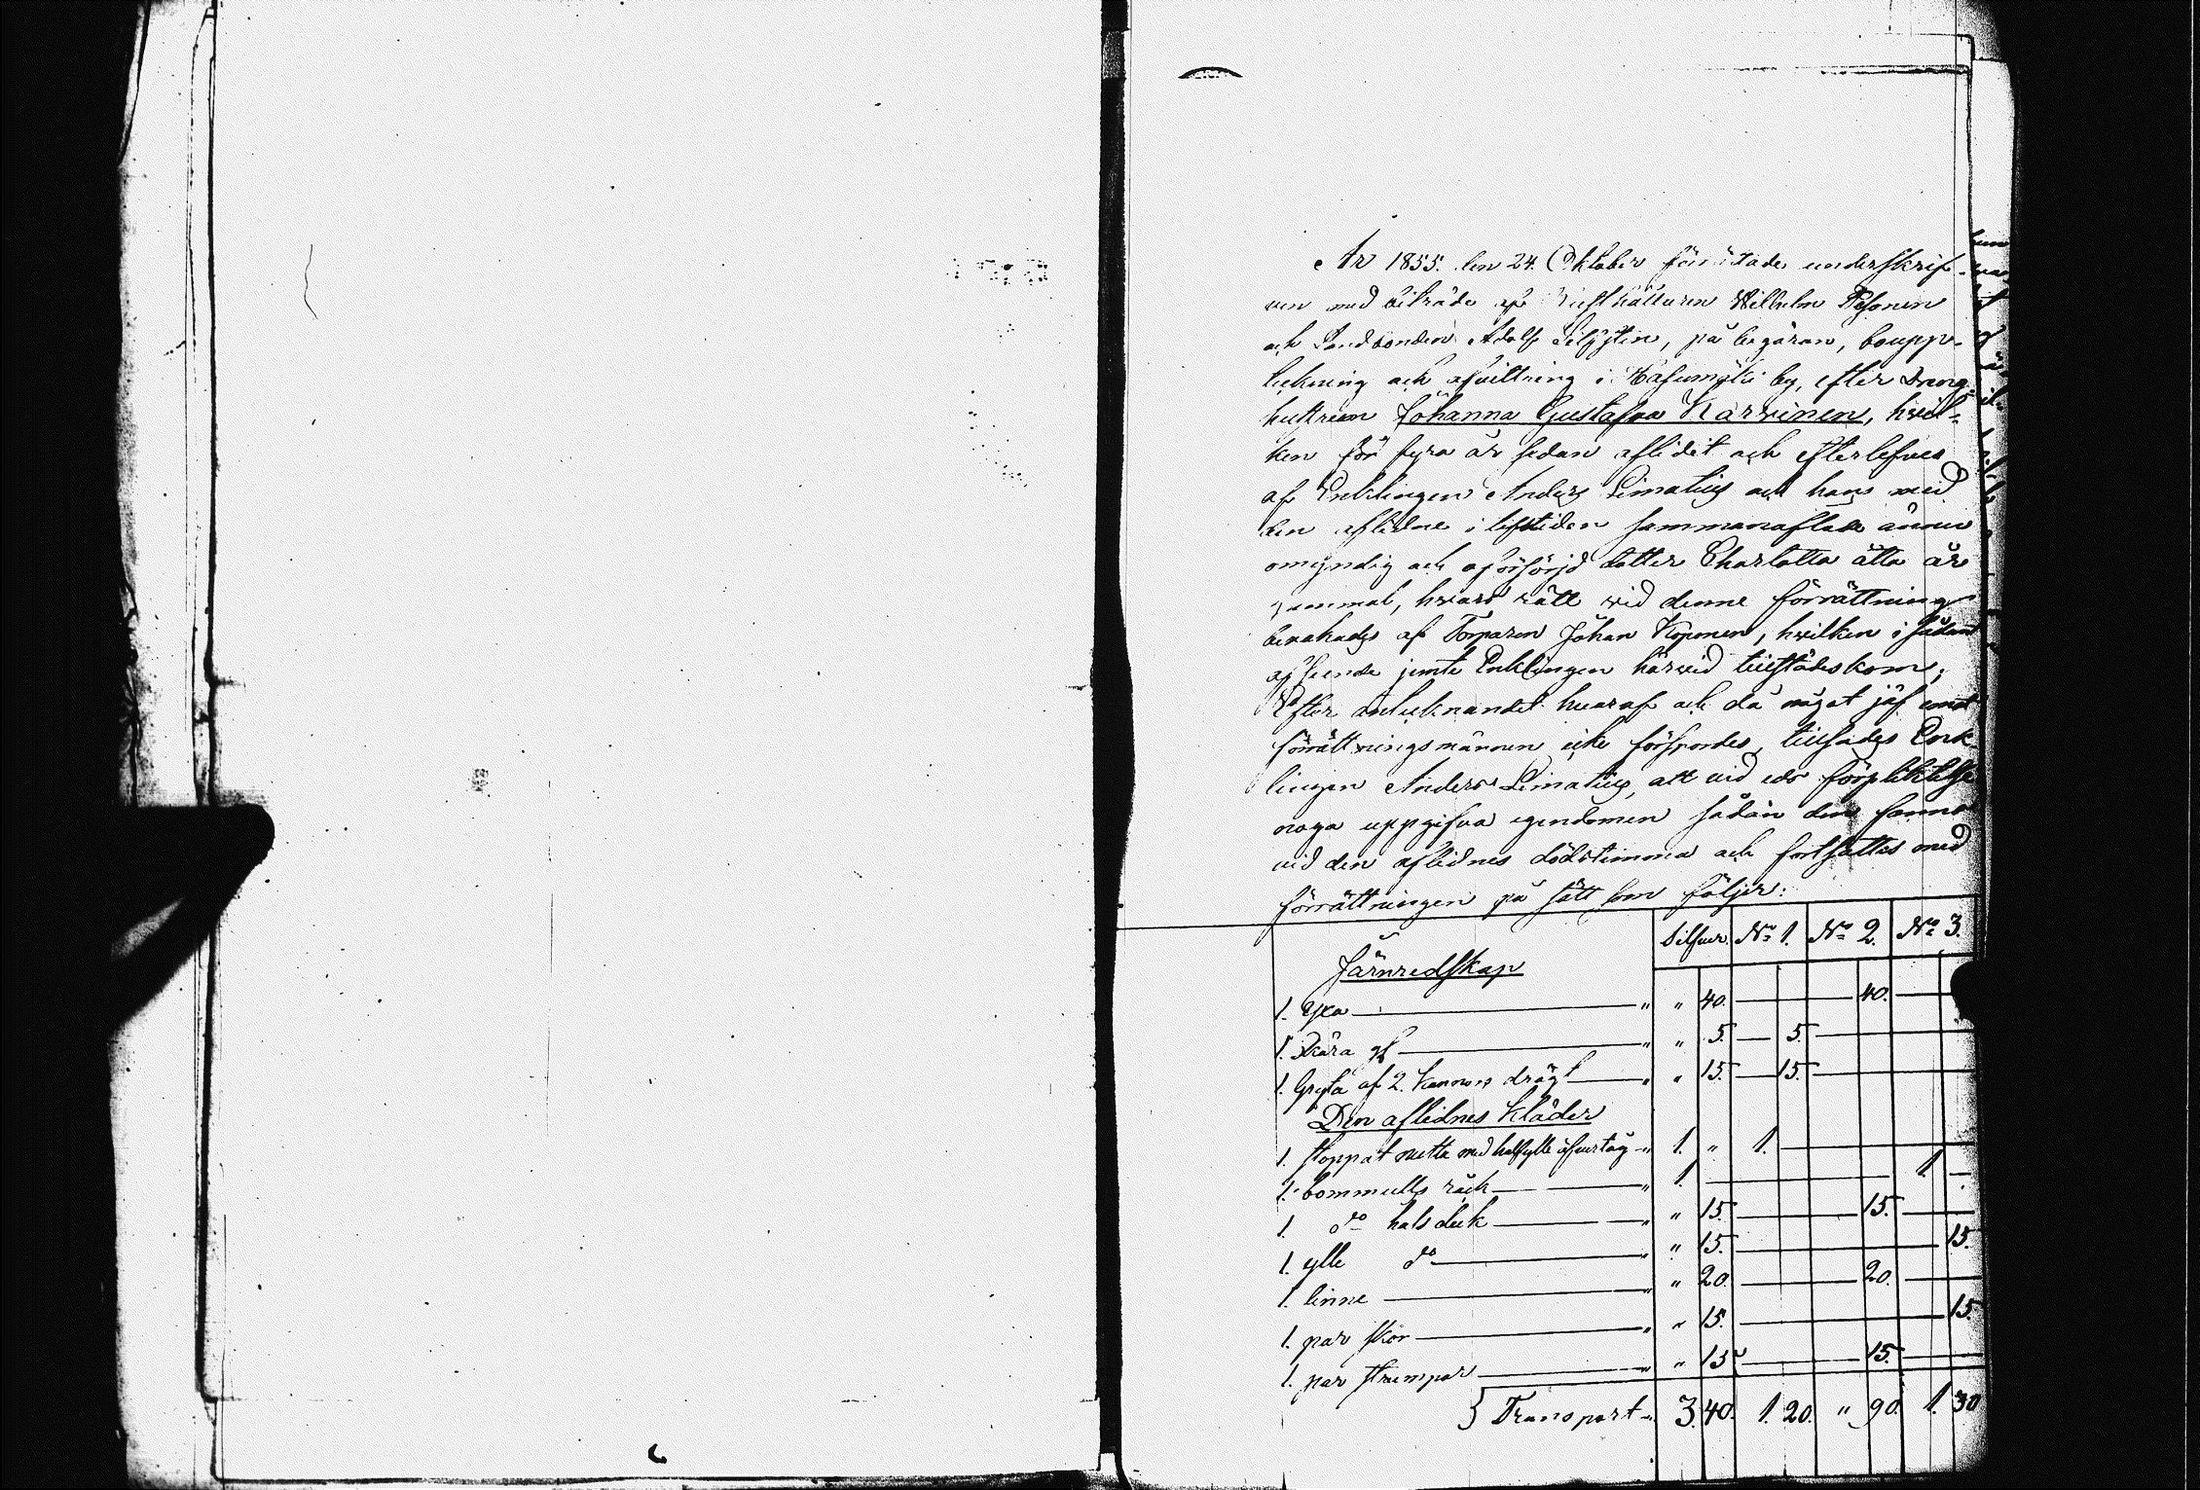 År 1855. den 24. Oktober förrättade underskrif-
ven med biträde af Rusthållaren Wilhelm Pesonen
och Landbonden Adolf, på begäran, bouppe-
teckning och afvittring i by, efter Dreng-
hustrun Johanna Gustafva Karvinen, hvil-
ken för fyra år sedan aflidit och efterlefves
af Enklingen Anders Limatius och hans med
den aflidne i lifstiden sammanaflade ännu
omyndig och oförsörjd dotter Charlotta åtta år
gammal, hvars rätt vid denne förrättning
bevakades af Torparen Johan Koponen, hvilken i sådant
afseende jemte Enklingen härvid tillstädeskom;
Efter antecknandet hvaraf och då något jäf emot
förrättningsmännen icke förspordes, tillsades Enk-
lingen Anders Limatius, att vid eds förpliktelse
noga uppgifva egendomen sådan den fanns
vid den aflidnes dödstimma och fortsattes med
förrättningen på sätt som följer:
Silfver. No 1. No 2. No 3.
Järnredskap
1. Yxa " " 40. 40.
1. Skära gl " " 5. 5.
1. Gryta af 2. kannors drägt " " 15. 15.
Den aflidnes kläder
1. stoppat med halfylle öfvertåg " 1. " 1.
1. bommulls " 1. 1.
1. do halsduk " " 15. 15.
1. ylle do " " 15. 15.
1. linne " " 20. 20.
1. par skor " " 15. 15.
1. par strumpor " " 15 15.
Transport " 3. 40. 1. 20. " 90. 1. 30